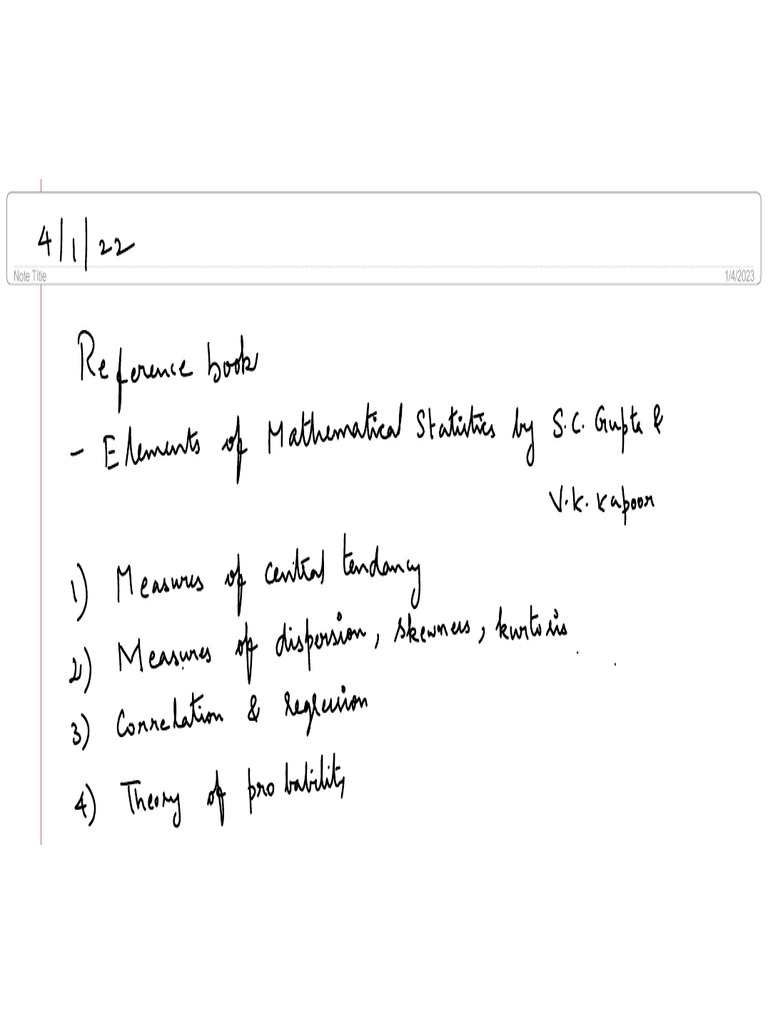 4/1/22
Note Title
1/4/2023
Reference book
- Elements of Mathematical Statistics by S.C. Gupta &
V.K. Kapoor
1) Measures of central tendancy
2) Measures of dispersion, skewness, kurtosis.
3) Correlation & regression
4) Theory of probability